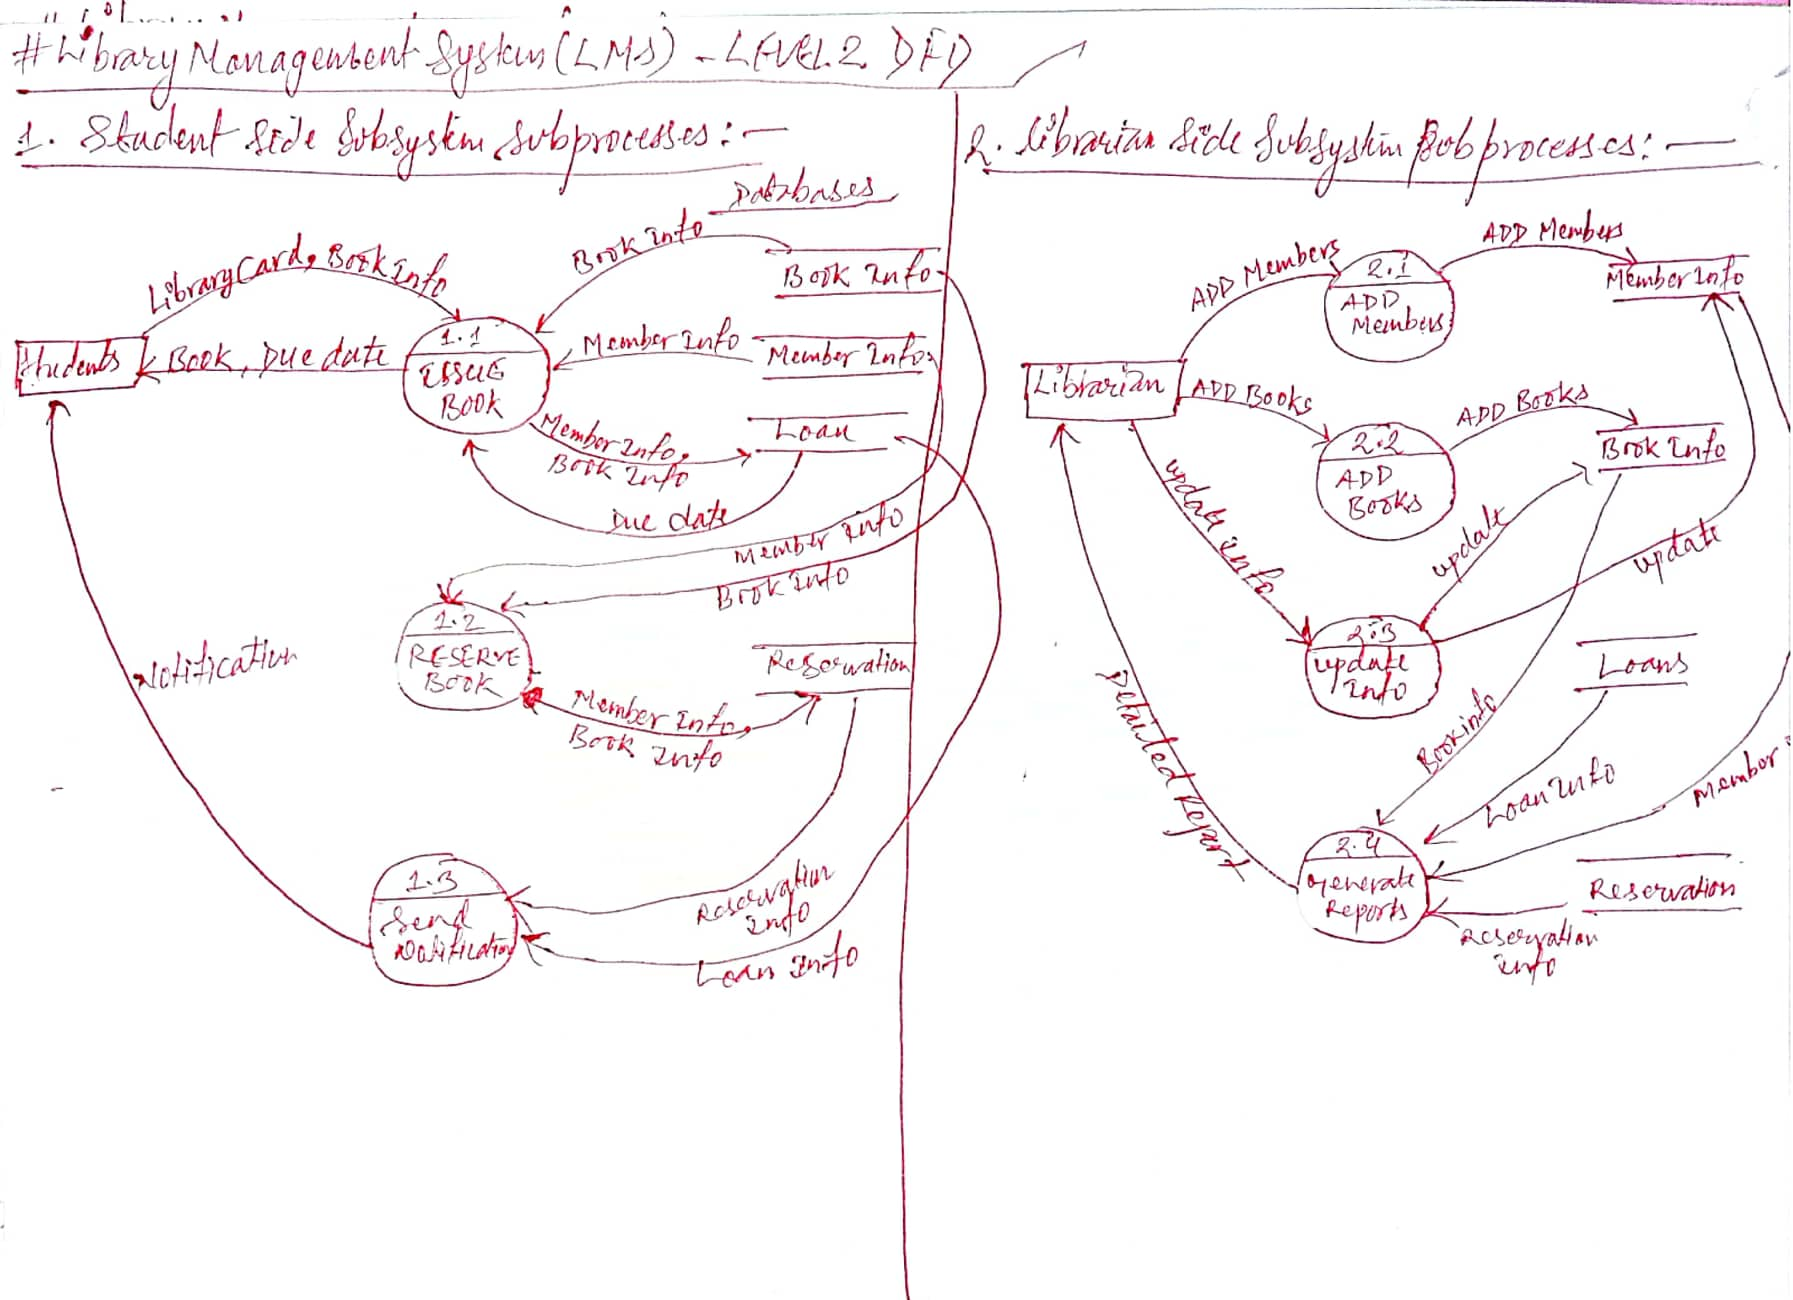 # Library Management System (LMS) - LEVEL 2 DFD
1. Student Side Subsystem Subprocesses: —
Databases
Library Card, Book Info
Book Info
Book Info
Students
Book, Due date
1.1
ISSUE
BOOK
Member Info
Member Info
Member Info,
Book Info
Loan
Due date
Member Info
Book Info
1.2
RESERVE
BOOK
Reservation
Member Info,
Book Info
Notification
1.3
Send
Notification
Reservation
Info
Loan Info
2. Librarian Side Subsystem Subprocesses: —
ADD Members
2.1
ADD
Members
ADD Members
Member Info
Librarian
ADD Books
2.2
ADD
Books
ADD Books
Book Info
update info
2.3
update
Info
update
update
Loans
Book info
Loan Info
Member
Detailed Report
2.4
Generate
Reports
Reservation
Reservation
info